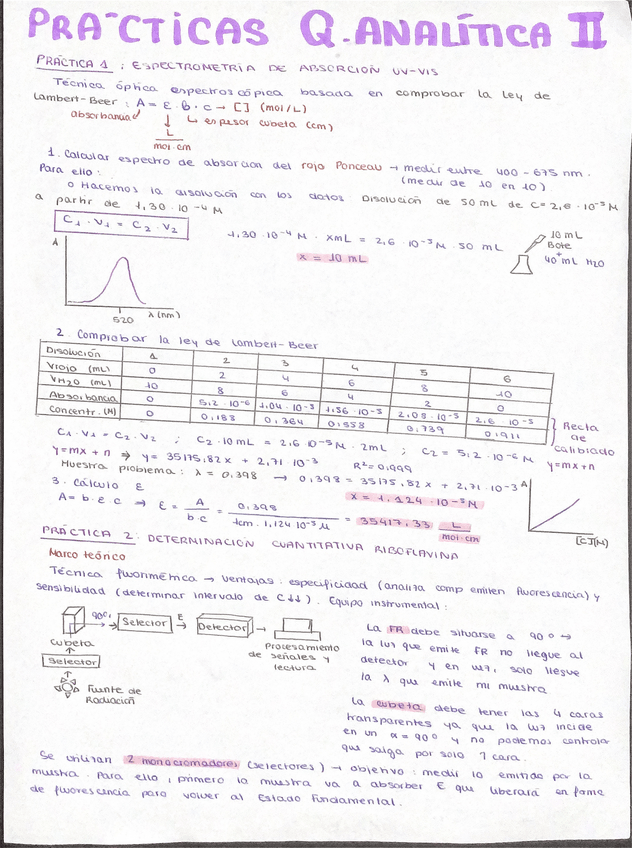 PRÁCTICAS Q. ANALÍTICA II
PRÁCTICA 1: ESPECTROMETRÍA DE ABSORCIÓN UV-VIS
Técnica óptica espectroscópica basada en comprobar la ley de
Lambert-Beer: A = ε · b · c → [] (mol/L)
absorbancia
↳ espesor cubeta (cm)
L
mol·cm
1. Calcular espectro de absorción del rojo Ponceau → medir entre 400 - 675 nm.
Para ello:
(medir de 10 en 10)
o Hacemos la disolución con los datos Disolución de 50 mL de C = 2,6 · 10⁻⁵ M
a partir de 1,30 · 10⁻⁴ M
C₁ · V₁ = C₂ · V₂
1,30 · 10⁻⁴ M · x mL = 2,6 · 10⁻⁵ M · 50 mL
x = 10 mL
10 mL
Bote
+
40 mL H2O
A
520
λ (nm)
2. Comprobar la ley de Lambert-Beer
Disolución 1 2 3 4 5 6
Vrojo (mL) 0 2 4 6 8 10
VH2O (mL) 10 8 6 4 2 0
Absorbancia 0 5,2 · 10⁻⁶ 1,04 · 10⁻⁵ 1,56 · 10⁻⁵ 2,08 · 10⁻⁵ 2,6 · 10⁻⁵
Concentr. (M) 0 0,183 0,364 0,558 0,739 0,911
Recta
de
calibrado
y=mx+n
C₁ · V₁ = C₂ · V₂ ; C₂ · 10 mL = 2,6 · 10⁻⁵ M · 2mL ; C₂ = 5,2 · 10⁻⁶ M
y=mx + n ⇒ y = 35175,82 x + 2,71 · 10⁻³ R² = 0,999
Muestra problema: λ = 0,398 → 0,398 = 35175,82 x + 2,71 · 10⁻³
x = 1,124 · 10⁻⁵ M
3. Cálculo ε
A = b · ε · c ⇒ ε = A / b·c = 0,398 / 1cm · 1,124 · 10⁻⁵ M = 35417,33 L / mol·cm
A
[C](M)
PRÁCTICA 2: DETERMINACIÓN CUANTITATIVA RIBOFLAVINA
Marco teórico
Técnica fluorimétrica → ventajas: especificidad (analiza comp emiten fluorescencia) y
sensibilidad (determinar intervalo de C↓↓). Equipo instrumental:
90º
Selector
E
Detector
cubeta
Procesamiento
de señales y
lectura
Selector
Fuente de
Radiación
La FR debe situarse a 90º →
la luz que emite FR no llegue al
detector y en luz, solo llegue
la λ que emite mi muestra
La cubeta debe tener las 4 caras
transparentes ya que la luz incide
en un α = 90º y no podemos controlar
que salga por solo 1 cara.
Se utilizan 2 monocromadores (selectores) → objetivo: medir lo emitido por la
muestra. Para ello, primero la muestra va a absorber E que liberará en forma
de fluorescencia para volver al Estado Fundamental.